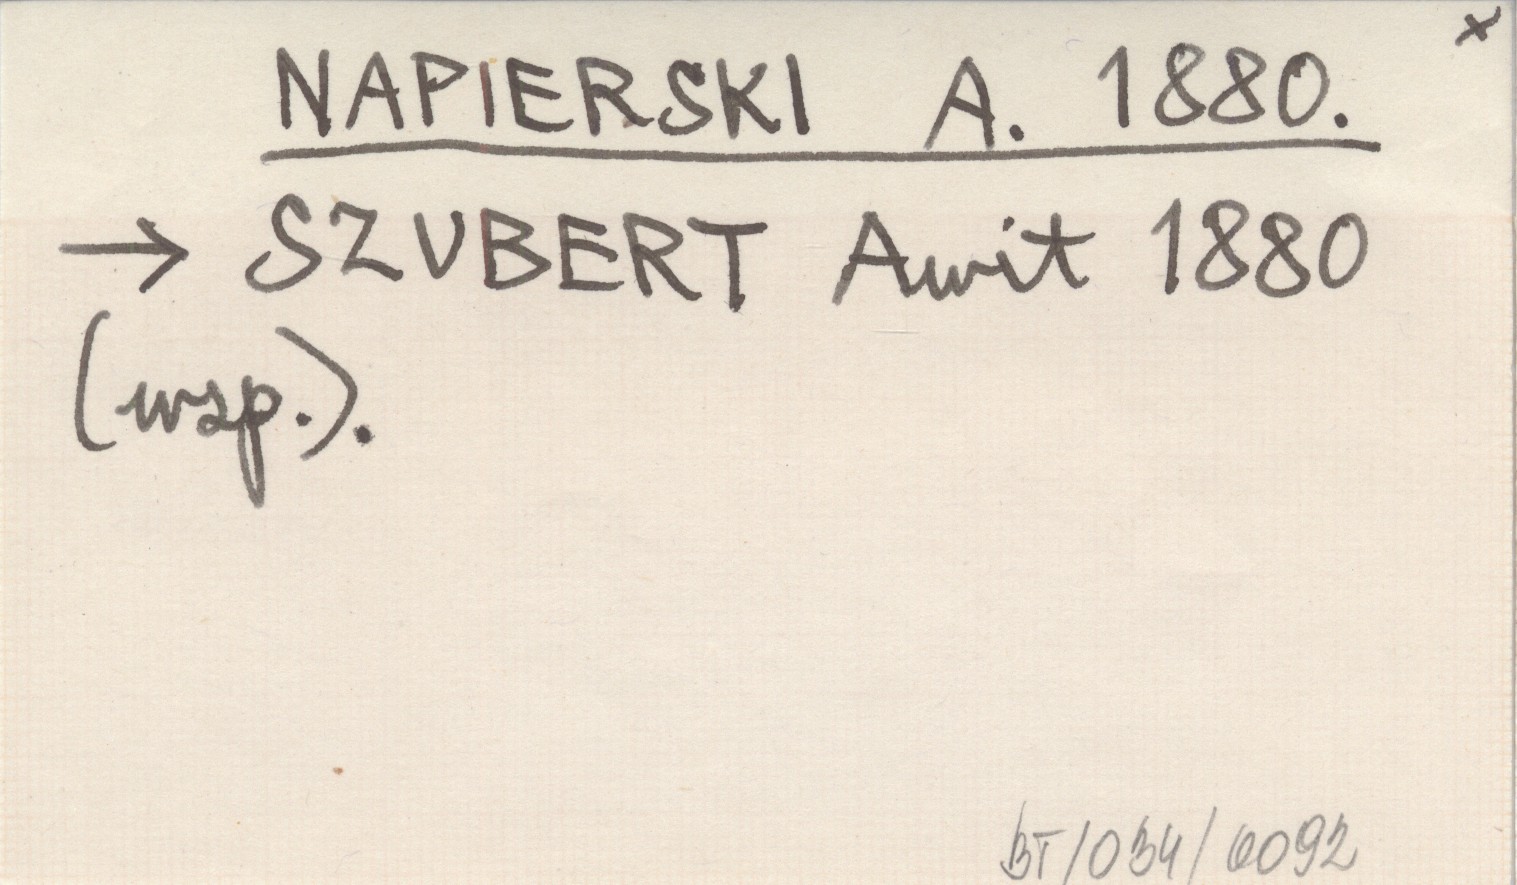 x
NAPIERSKI A. 1880.
→ SZUBERT Awit 1880
(wsp.).
BT/034/0092